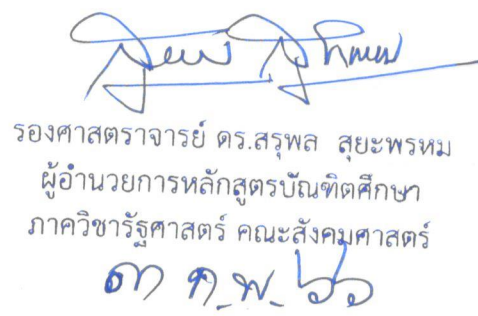 รองศาสตราจารย์ ดร.สรุพล สุยะพรหม
ผู้อำนวยการหลักสูตรบัณฑิตศึกษา
ภาควิชารัฐศาสตร์ คณะสังคมศาสตร์
๓๓ ก.พ. ๖๖